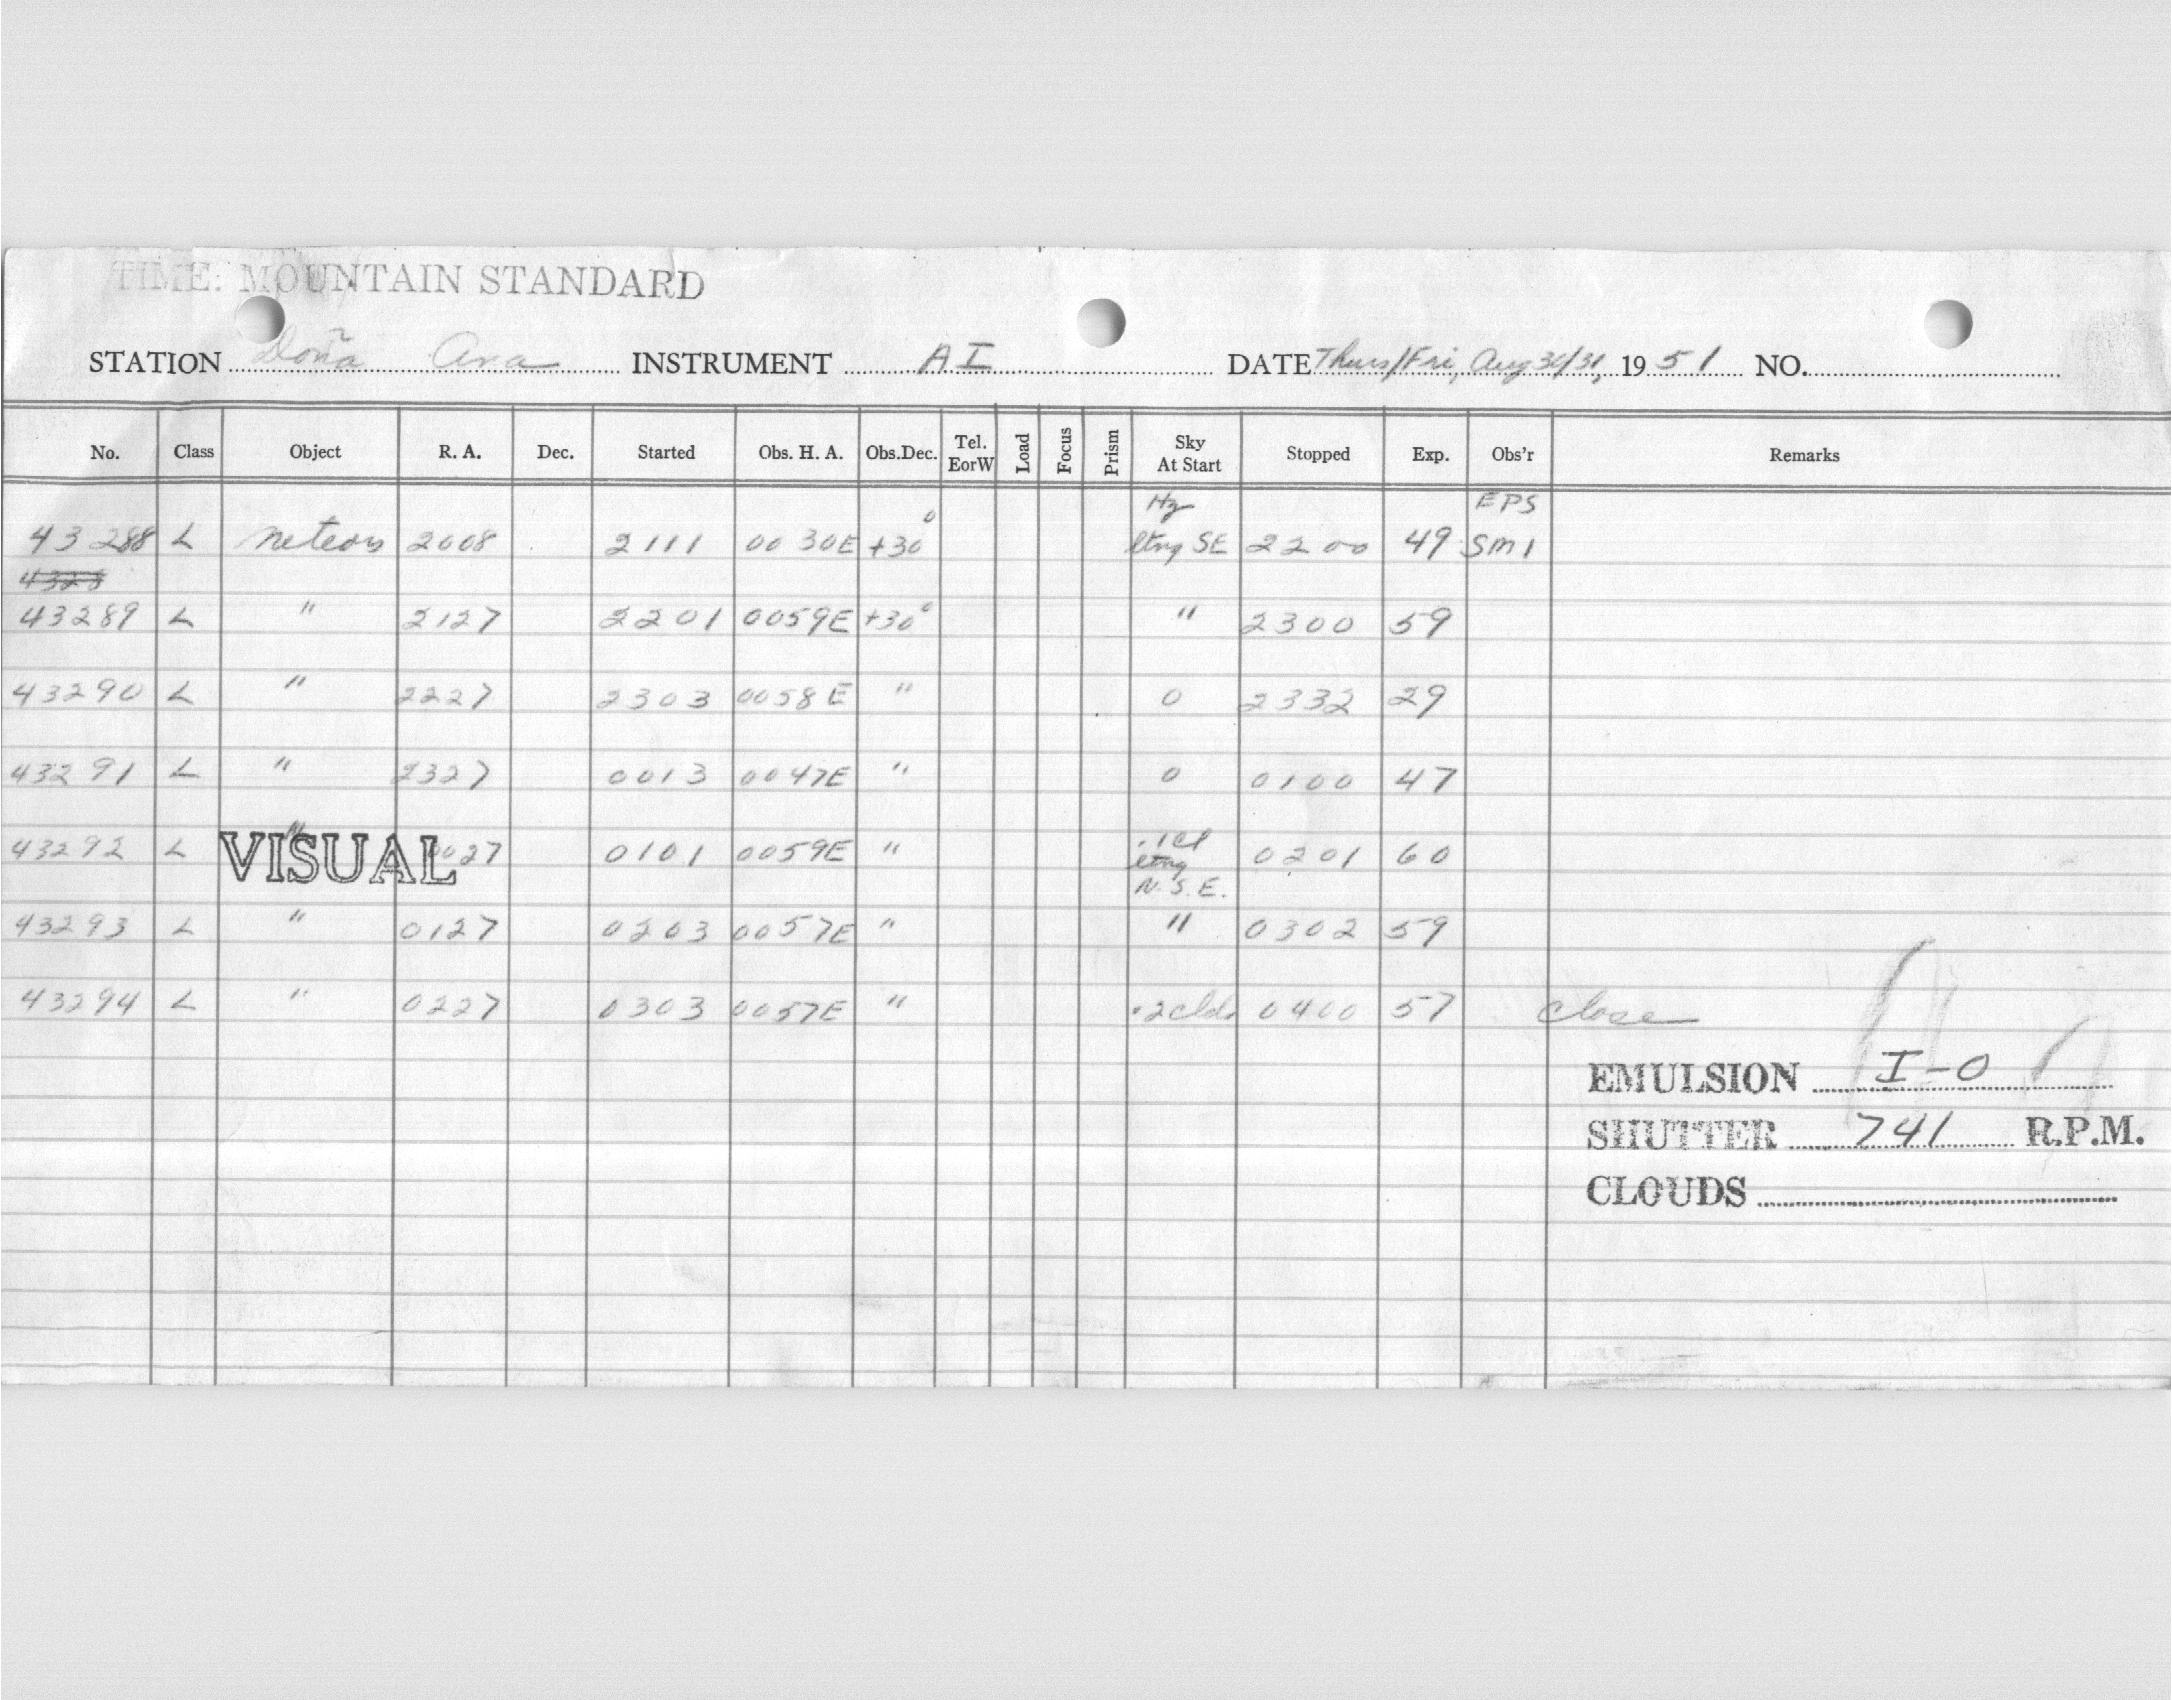 TIME: MOUNTAIN STANDARD
STATION Doña Ana INSTRUMENT AI DATE Thurs/Fri, Aug 30/31, 1951 NO.
No. Class Object R. A. Dec. Started Obs. H. A. Obs.Dec. Tel. EorW Load Focus Prism Sky At Start Stopped Exp. Obs'r Remarks
Hz EPS
43288 L meteors 2008 2111 0030E +30° ltng SE 2200 49 SM1
4328
43289 L " 2127 2201 0059E +30° " 2300 59
43290 L " 2227 2303 0058E " 0 2332 29
43291 L " 2327 0013 0047E " 0 0100 47
43292 L " VISUAL 0027 0101 0059E " .1cl ltng N.S.E. 0201 60
43293 L " 0127 0203 0057E " " 0302 59
43294 L " 0227 0303 0057E " .2clds 0400 57 close
EMULSION I-O
SHUTTER 741 R.P.M.
CLOUDS